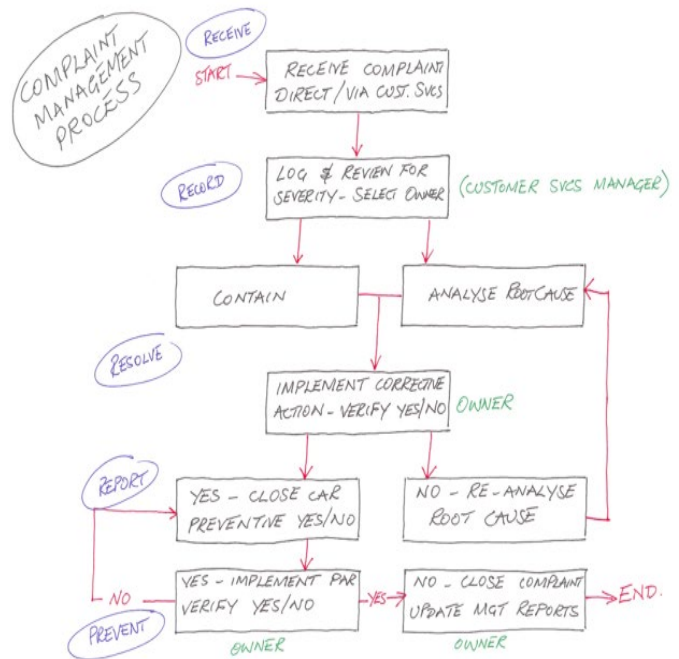 COMPLAINT
MANAGEMENT
PROCESS
RECEIVE
START
RECEIVE COMPLAINT
DIRECT/VIA CUST. SVCS
RECORD
LOG & REVIEW FOR
SEVERITY - SELECT OWNER
(CUSTOMER SVCS MANAGER)
CONTAIN
ANALYSE ROOT CAUSE
RESOLVE
IMPLEMENT CORRECTIVE
ACTION - VERIFY YES/NO
OWNER
REPORT
YES - CLOSE CAR
PREVENTIVE YES/NO
NO - RE-ANALYSE
ROOT CAUSE
NO
YES - IMPLEMENT PAR
VERIFY YES/NO
YES
NO - CLOSE COMPLAINT
UPDATE MGT REPORTS
END.
PREVENT
OWNER
OWNER